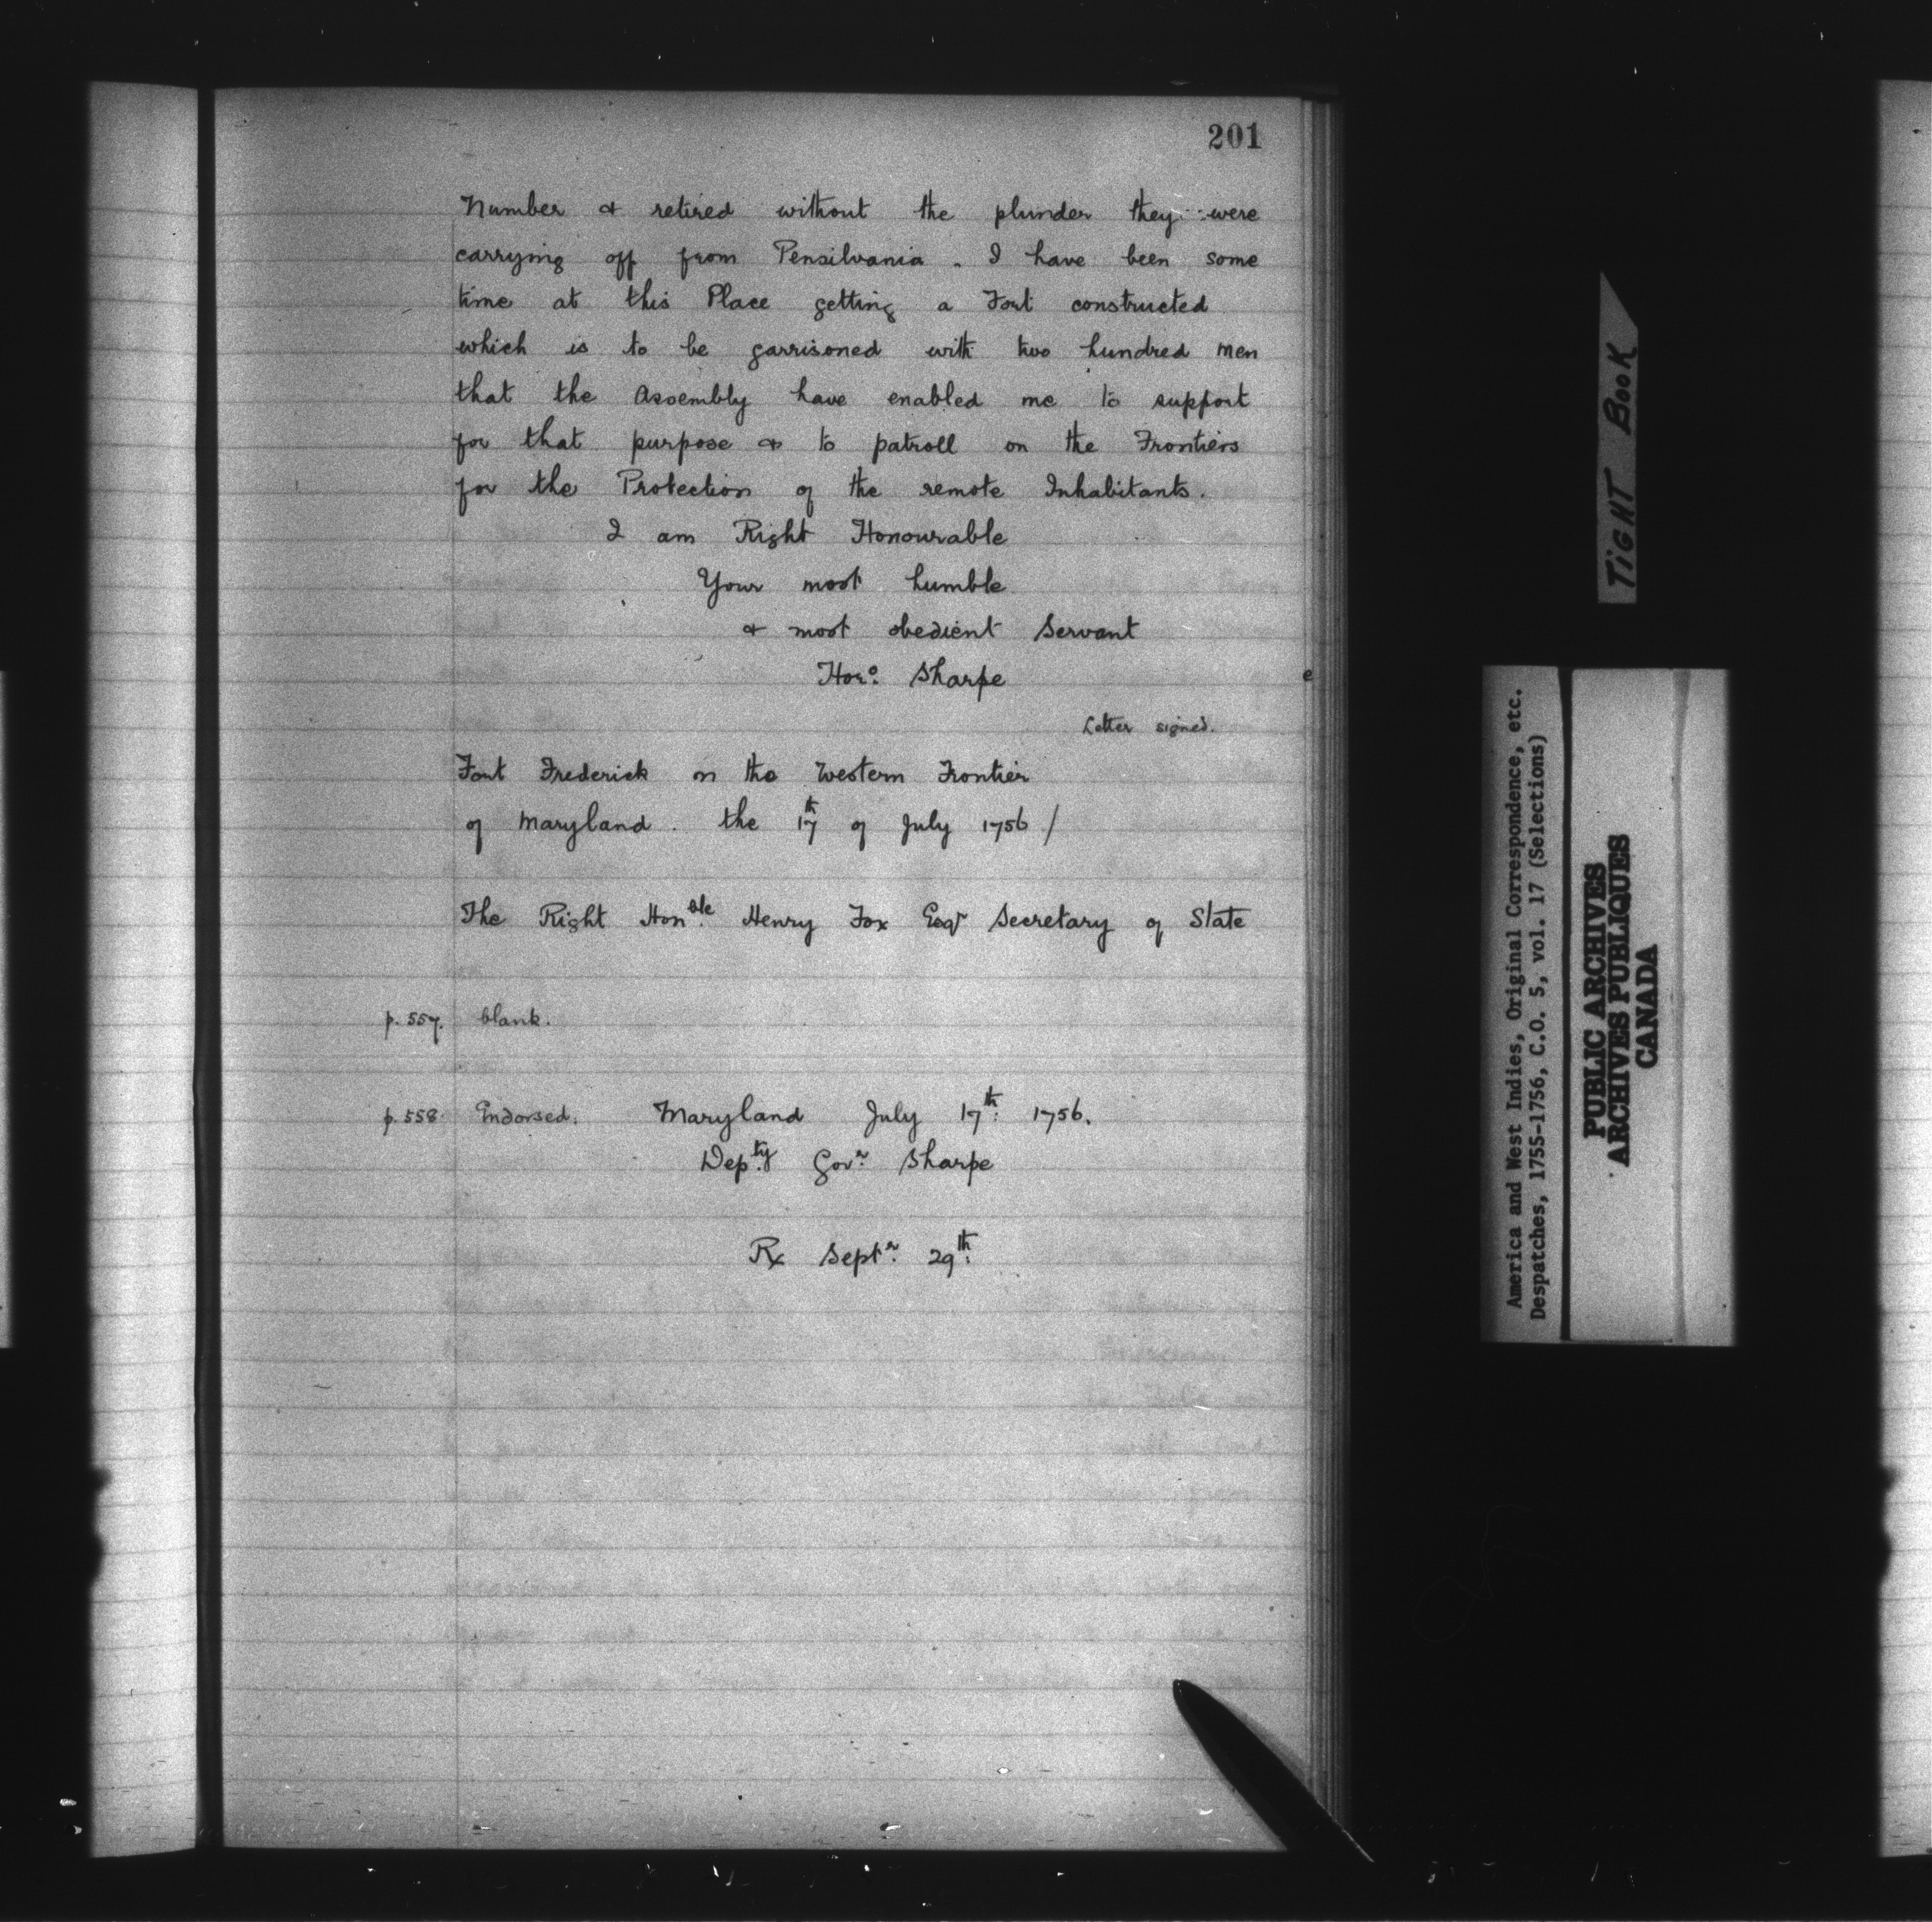 201
Number & retired without the plunder they were
carrying off from Pensilvania . I have been some
time at this Place getting a Fort constructed
which is to be garrisoned with two hundred men
that the Assembly have enabled me to support
for that purpose & to patroll on the Frontiers
for the Protection of the remote Inhabitants.
I am Right Honourable
Your most humble
& most obedient Servant
Horo. Sharpe
Letter signed.
Fort Frederick on the Western Frontier
of Maryland. the 17th of July 1756 /
The Right Honble. Henry Fox Esqr Secretary of State
p. 557. blank.
p. 558 Endorsed. Maryland July 17th: 1756.
Dep.ty Govr. Sharpe
Rx Septr. 29th:
TIGHT BOOK
America and West Indies, Original Correspondence, etc.
Despatches, 1755-1756, C.O. 5, vol. 17 (Selections)
PUBLIC ARCHIVES
ARCHIVES PUBLIQUES
CANADA